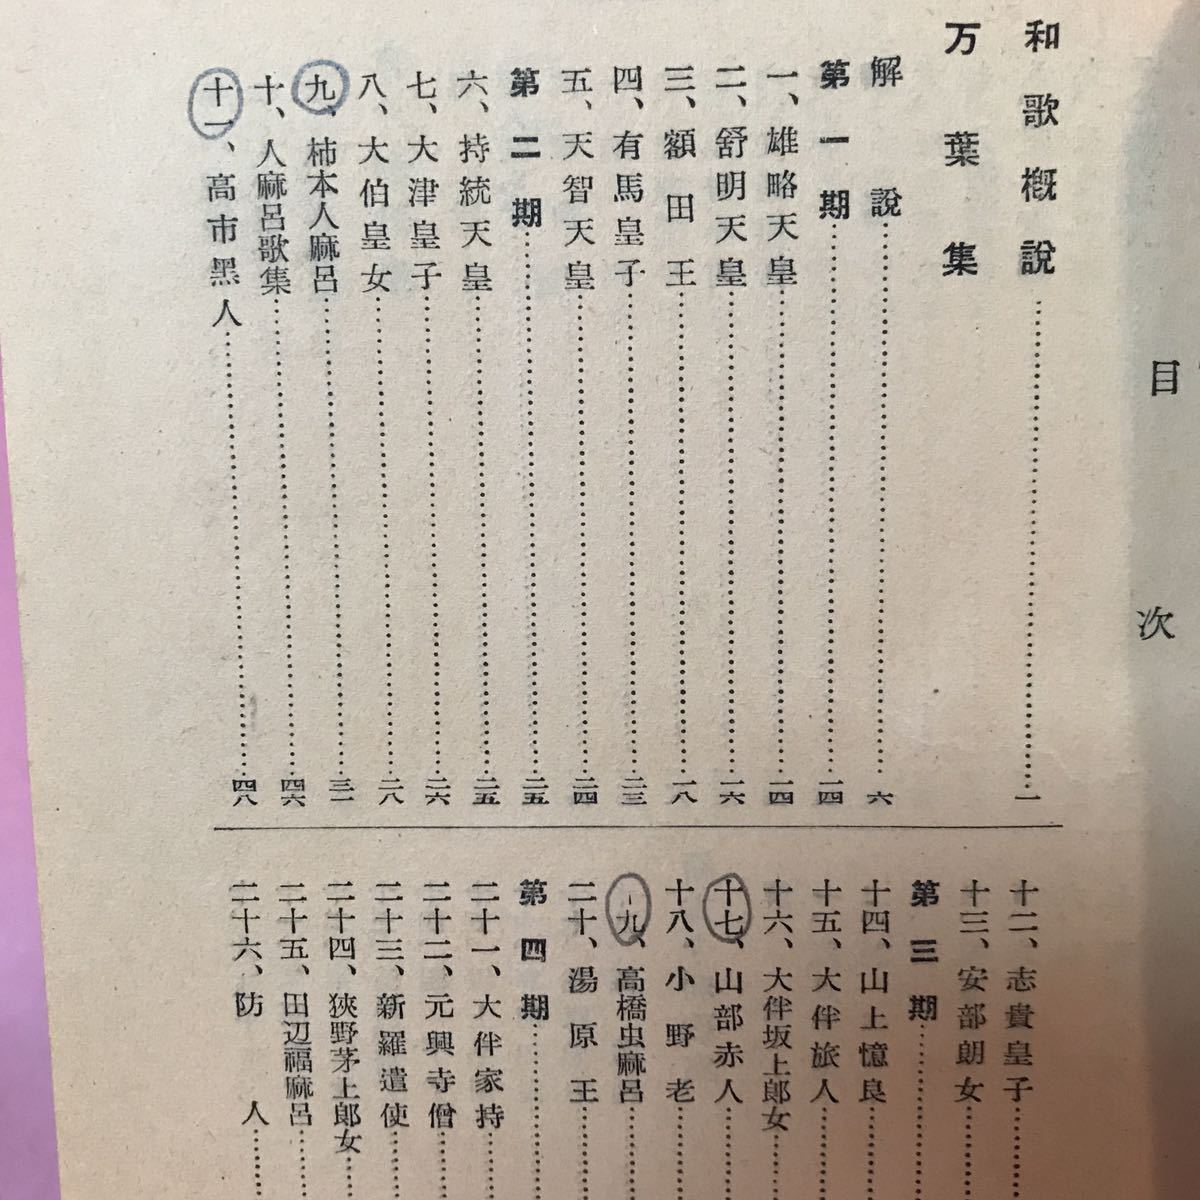 目次
和歌概説……一
万葉集
解説……六
第一期……一四
一、雄略天皇……一四
二、舒明天皇……一六
三、額田王……一八
四、有馬皇子……二三
五、天智天皇……二四
第二期……二五
六、持統天皇……二五
七、大津皇子……二六
八、大伯皇女……二八
九、柿本人麻呂……三一
十、人麻呂歌集……四六
十一、高市黑人……四八
十二、志貴皇子……
十三、安部朗女……
第三期……
十四、山上憶良……
十五、大伴旅人……
十六、大伴坂上郞女……
十七、山部赤人……
十八、小野老……
十九、高橋虫麻呂……
二十、湯原王……
第四期……
二十一、大伴家持……
二十二、元興寺僧……
二十三、新羅遣使……
二十四、狹野茅上郞女……
二十五、田辺福麻呂……
二十六、防人……